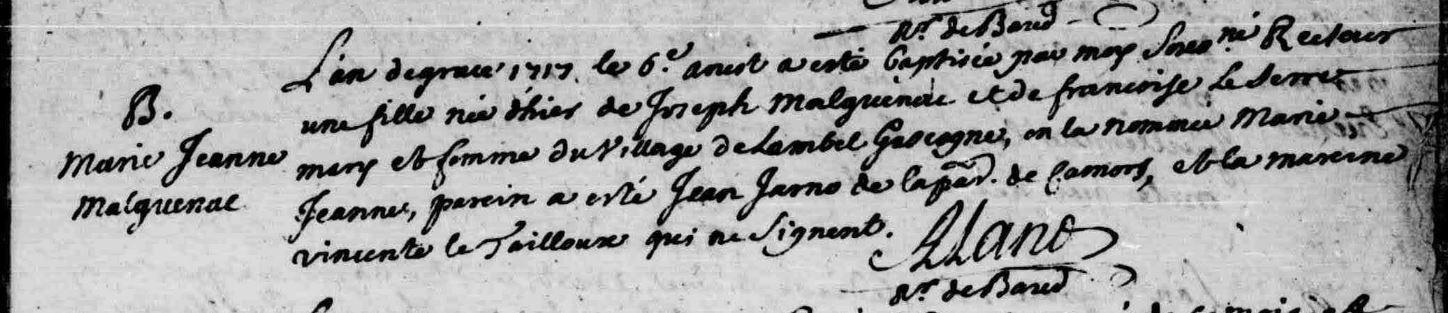 Rr. de Baud
L'an de grace 1717. le 6.e aoust a esté baptisée par moy Recteur
une fille née d'hier de Joseph Malquenac et de francoise Le Serre
B.
mary et femme du Village de Lambel Gascogne, on la nommée Marie
Marie Jeanne
Malquenac
Jeanne, parein a esté Jean Jarno de la par. de Camors, et la mareine
vincente le Tailloux qui ne signent.
Allano
Rr. de Baud